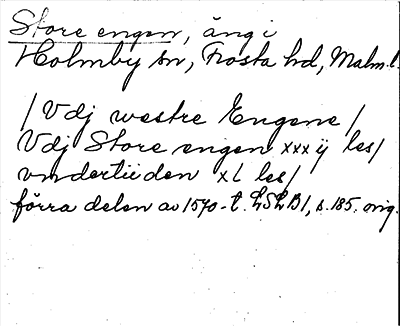 Store engen, äng i
Holmby sn, Frosta hd, Malm.l.
/Vdj westre Engene/
Vdj Store engen xxx ij les/
vndertiiden xL les/
förra delen av 1570-t. LSLB1, s. 185. orig.